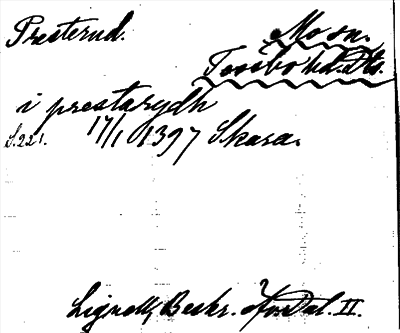 Presterud. Mo sn.
Tössbo hd. Dls.
i prestarydh
S.221. 17/1 1397 Skara.
Lignell, Beskr. öfver Dal. II.